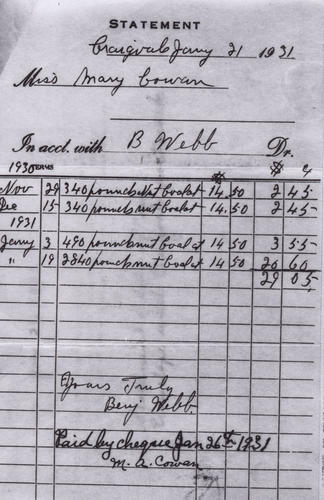 STATEMENT
Craigvale Jany 21 1931
Miss Mary Cowan
In acct. with B Webb Dr.
1930 TERMS $ $ c
Nov 29 340 pounds Nut Coal at 14.50 2 45
Dec 15 340 pounds nut Coal at 14.50 2 45
1931
Jany 3 490 pounds nut Coal at 14 50 3 55
" 19 2840 pounds nut Coal at 14 50 20 60
29 05
Yours Truly
Benj Webb
Paid by cheque Jan 26th 1931
M. A. Cowan